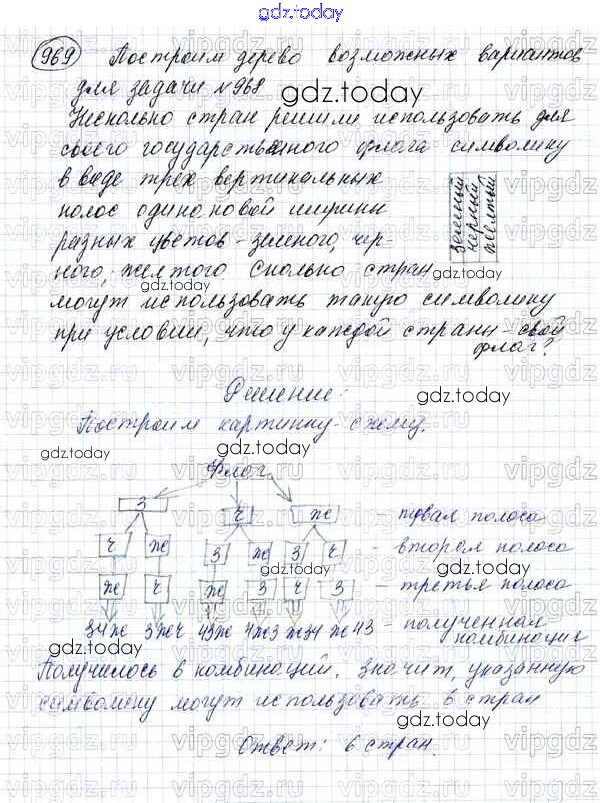 gdz.today
969 Построим дерево возможных вариантов
для задачи №968
gdz.today
Несколько стран решили использовать для
своего государственного флага символику
в виде трёх вертикальных
полос одинаковой ширины
разных цветов - зеленого, чёр-
ного, желтого Сколько стран
могут использовать такую символику
при условии, что у каждой страны свой
флаг?
зеленый
черный
желтый
gdz.today
gdz.today
Решение:
gdz.today
Построим картинку-схему.
gdz.today
Флаг
З Ч Ж - первая полоса
Ч Ж З Ж З Ч - вторая полоса
Ж Ч Ж З Ч З - третья полоса
gdz.today
ЗЧЖ ЗЖЧ ЧЗЖ ЧЖЗ ЖЗЧ ЖЧЗ - полученная
комбинация
gdz.today
gdz.today
Получилось 6 комбинаций. Значит, указанную
символику могут использовать 6 стран
gdz.today
Ответ: 6 стран.
gdz.today
vipgdz.ru